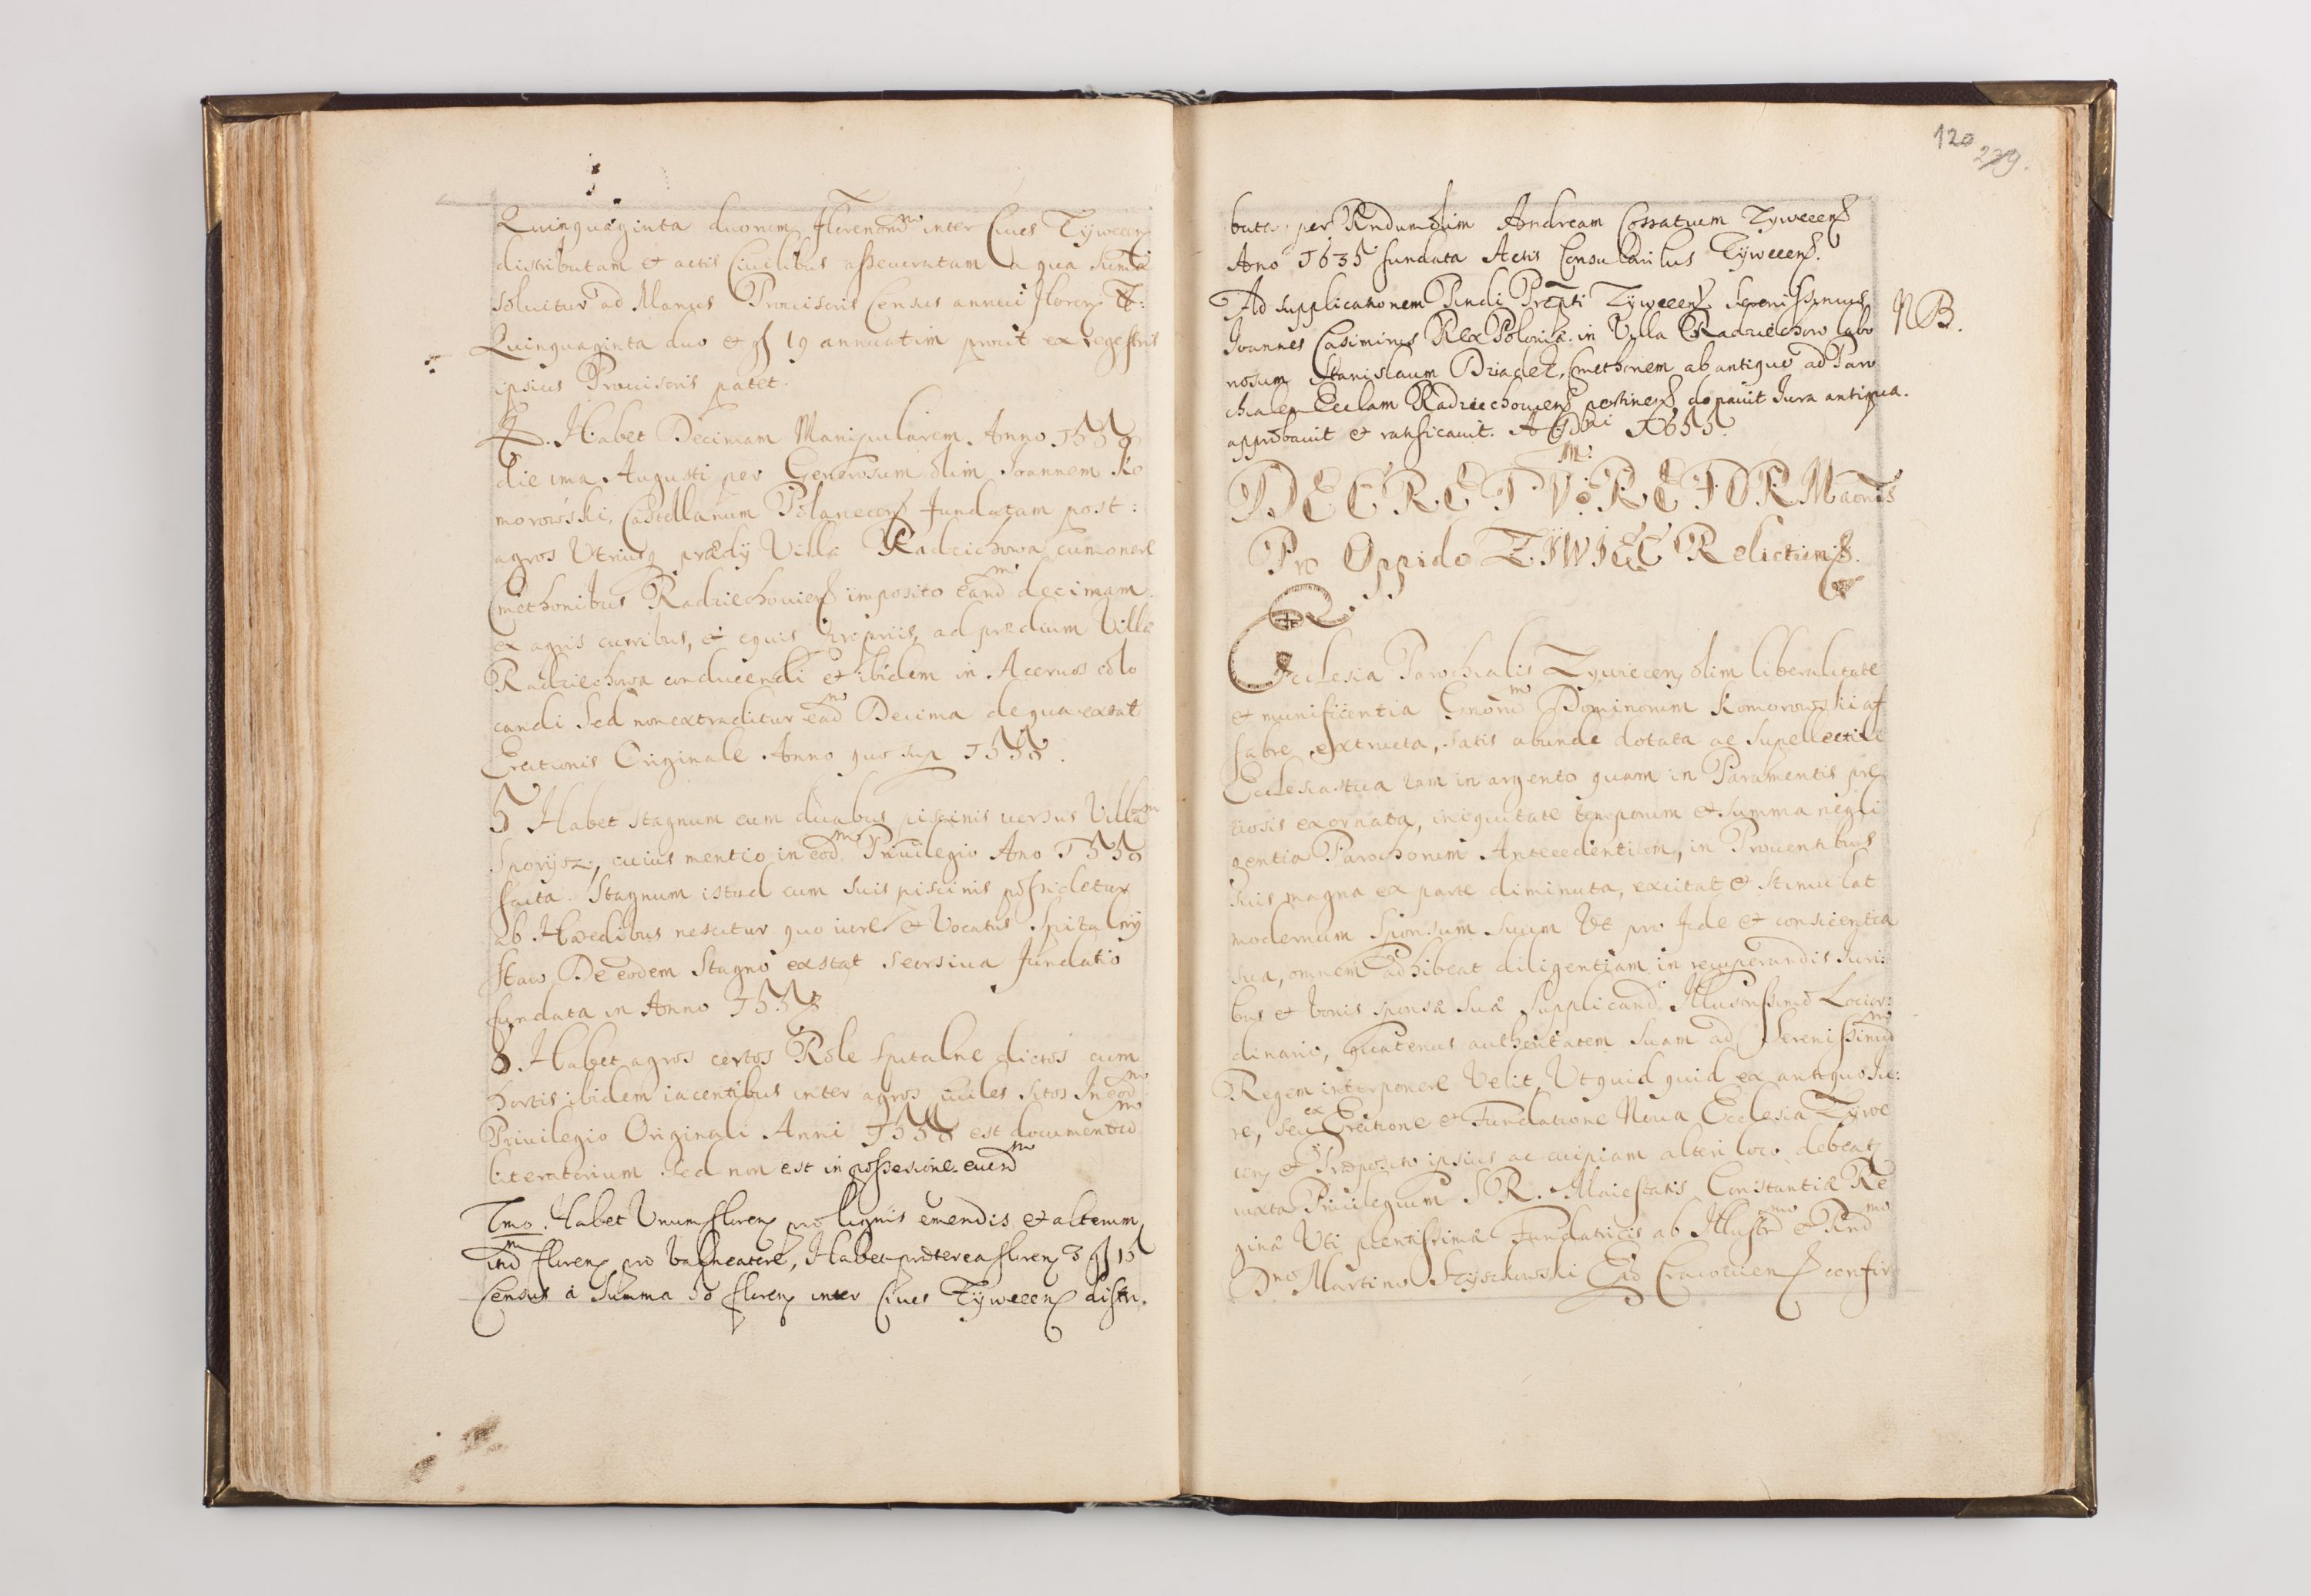 Quinquaginta duorum Florenorū inter Ciues Zÿwecen
distributam et actis Ciuilibus asseueratam a qua Suma
soluitur ad Manus Prouisoris Census annui floren
Quinquaginta duo et gſ 19 annuatim prout ex regestris
ipsius Prouisoris patet.
Habet Decimam Manipularem Anno 1558
die ima Augusti per Generosum olim Joannem Ko
morowski, Castellanum Polanecen fundatam post:
agros Vtriusq prædij Villæ Radzichowa cum onere
Cmethonibus Radziechouien imposito eand decimam
ex agris curribus, et equis propriis, ad prædium Villæ
Radziechowa conducendi et ibidem in Aceruos colo
candi Sed non extraditur ead Decima de qua exstat
Erectionis Originale Anno quo sup 1558.
5 Habet stagnum cum duabus piscinis uersus Villam
Sporijsz, cuius mentio in eod Priuilegio Ano 1558
facta. Stagnum istud cum suis piscinis possidetur
ab Hæredibus nescitur quo iure et Vocatur Spitalnÿ
staw De eodem Stagno exstat seorsiua fundatio
fundata in Anno 1558
6. Habet agros certos Role spitalne dictos cum
hortis ibidem iacentibus inter agros ciuiles sitos In eod
Priuilegio Originali Anni 1558 est documentū
literatorium sed non est in possesione eund
7mo. Habet Vnum floren pro lignis emendis et alterum
itid floren pro balneatore, Habet præterea floren 3 gſ 15
Census a Summa 50 floren inter Ciues Zÿwecen distri.
120
239.
buta per Rndum olim Andream Cossatium Zywecen
Ano 1635 fundata Actis Consularibus Zÿwecen.
Ad supplicationem Rndi Præpti Zÿwecen Serenissimus
Joannes Casimirus Rex Poloniæ in Villa Radziechow labo
NB.
riosum Stanislaum Dziadek, Cmethonem ab antiquo ad Paro
chialem Ecclam Radziechouien pertinen donauit Jura antiqua
approbauit et ratificauit. A Dni 1655.
DECRETVM REFORMaonis
Pro Oppido ZIWIEC Relictum.
Ecclesia Parochialis Zywiecen olim liberalitate
et munificentia Gnorū Dominorum Komorowski af
fabre extructa, satis abunde dotata ac supellectili
Ecclesiastica tam in argento quam in Paramentis pre
tiosis exornata, iniquitate temporum et summa negli
gentia Parochorum Antecedentium, in Prouentibus
suis magna ex parte diminuta, excitat et stimulat
modernum Sponsum Suum Vt pro fide et conscientia
sua, omnem adhibeat diligentiam in recuperandis Juri:
bus et bonis sponsæ suæ Supplicand Illustrissimo Locior:
dinario, quatenus authoritatem Suam ad Serenissimū
Regem interponere Velit, Vt quid quid ex antiquo Ju:
re, seu ex Erectione et Fundatione Noua Ecclesiæ Zywe
cen et Præposito ipsius ac cuipiam alteri loco debeat
iuxta Priuilegium S R. Maiestatis Constantiæ Re
ginæ Vti pientissimæ Fundatricis ab Illustr et Rnd
Dno Martino Szyszkowski Epo Cracouien confir